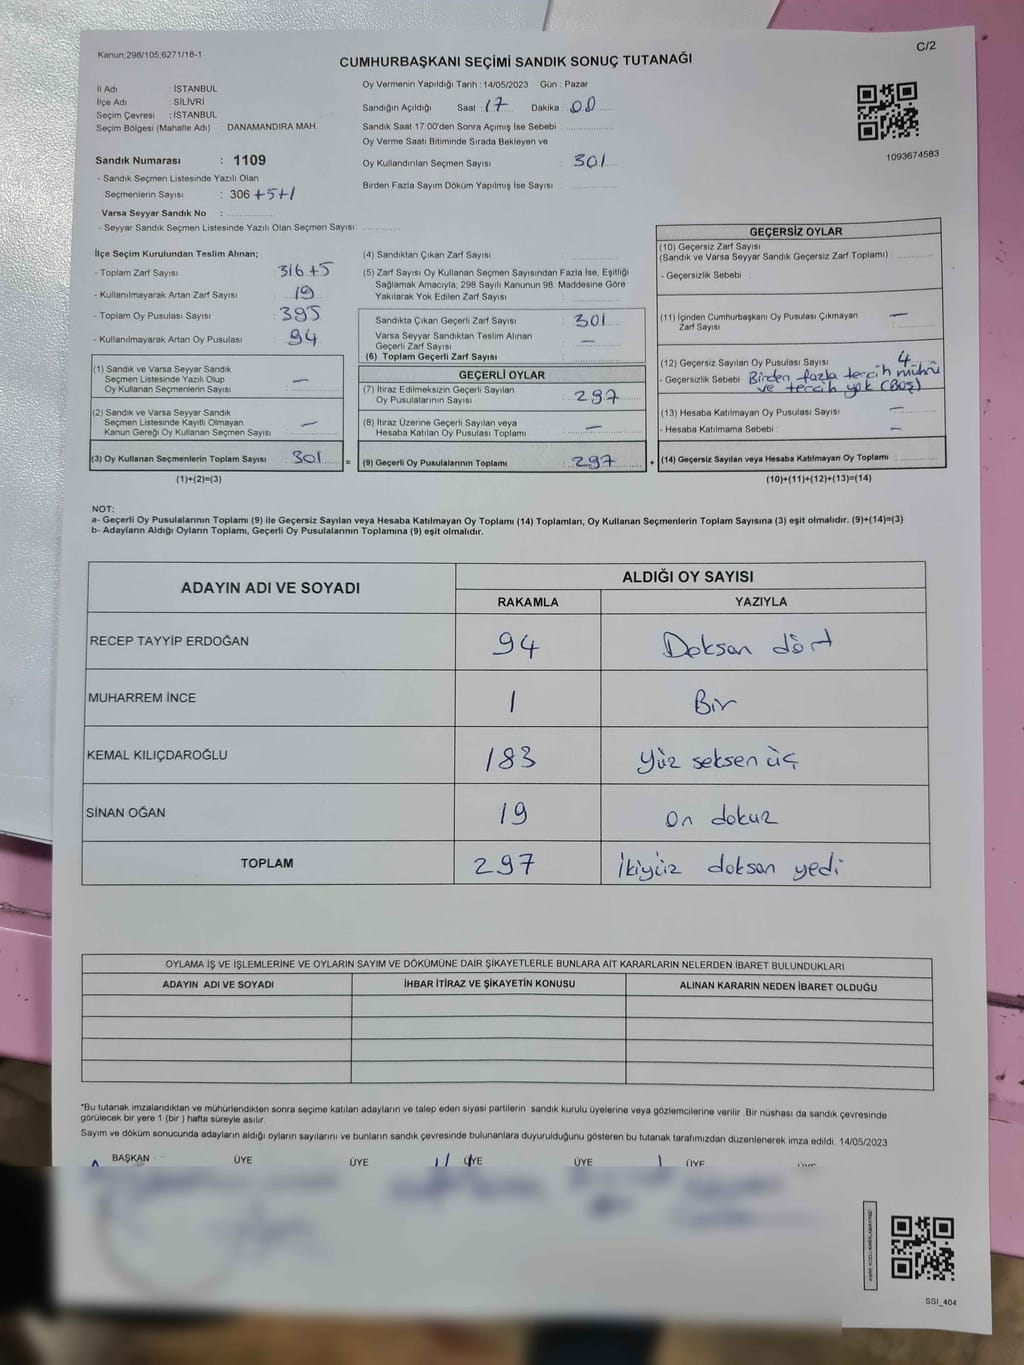 Kanun;298/105;6271/18-1
C/2
CUMHURBAŞKANI SEÇİMİ SANDIK SONUÇ TUTANAĞI
İl Adı : İSTANBUL
İlçe Adı : SİLİVRİ
Seçim Çevresi : İSTANBUL
Seçim Bölgesi (Mahalle Adı) : DANAMANDIRA MAH.
Sandık Numarası : 1109
- Sandık Seçmen Listesinde Yazılı Olan
Seçmenlerin Sayısı : 306 +5+1
Varsa Seyyar Sandık No :
- Seyyar Sandık Seçmen Listesinde Yazılı Olan Seçmen Sayısı:
Oy Vermenin Yapıldığı Tarih : 14/05/2023 Gün : Pazar
Sandığın Açıldığı Saat : 17 Dakika : 00
Sandık Saat 17:00'den Sonra Açımış İse Sebebi :
Oy Verme Saati Bitiminde Sırada Bekleyen ve
Oy Kullandırılan Seçmen Sayısı : 301
Birden Fazla Sayım Döküm Yapılmış İse Sayısı :
1093674583
İlçe Seçim Kurulundan Teslim Alınan;
- Toplam Zarf Sayısı : 316+5
- Kullanılmayarak Artan Zarf Sayısı : 19
- Toplam Oy Pusulası Sayısı : 395
- Kullanılmayarak Artan Oy Pusulası : 94
(1) Sandık ve Varsa Seyyar Sandık
Seçmen Listesinde Yazılı Olup
Oy Kullanan Seçmenlerin Sayısı : —
(2) Sandık ve Varsa Seyyar Sandık
Seçmen Listesinde Kayıtlı Olmayan
Kanun Gereği Oy Kullanan Seçmen Sayısı : —
(3) Oy Kullanan Seçmenlerin Toplam Sayısı : 301 =
(1)+(2)=(3)
(4) Sandıktan Çıkan Zarf Sayısı :
(5) Zarf Sayısı Oy Kullanan Seçmen Sayısından Fazla İse, Eşitliği
Sağlamak Amacıyla; 298 Sayılı Kanunun 98. Maddesine Göre
Yakılarak Yok Edilen Zarf Sayısı :
Sandıkta Çıkan Geçerli Zarf Sayısı : 301
Varsa Seyyar Sandıktan Teslim Alınan
Geçerli Zarf Sayısı : —
(6) Toplam Geçerli Zarf Sayısı :
GEÇERLİ OYLAR
(7) İtiraz Edilmeksizin Geçerli Sayılan
Oy Pusulalarının Sayısı : 297
(8) İtiraz Üzerine Geçerli Sayılan veya
Hesaba Katılan Oy Pusulası Toplamı : —
(9) Geçerli Oy Pusulalarının Toplamı : 297 +
GEÇERSİZ OYLAR
(10) Geçersiz Zarf Sayısı
(Sandık ve Varsa Seyyar Sandık Geçersiz Zarf Toplamı) :
- Geçersizlik Sebebi :
(11) İçinden Cumhurbaşkanı Oy Pusulası Çıkmayan
Zarf Sayısı : —
(12) Geçersiz Sayılan Oy Pusulası Sayısı : 4
- Geçersizlik Sebebi : Birden fazla tercih mührü
ve tercih yok (Boş)
(13) Hesaba Katılmayan Oy Pusulası Sayısı : —
- Hesaba Katılmama Sebebi : —
(14) Geçersiz Sayılan veya Hesaba Katılmayan Oy Toplamı :
(10)+(11)+(12)+(13)=(14)
NOT:
a- Geçerli Oy Pusulalarının Toplamı (9) ile Geçersiz Sayılan veya Hesaba Katılmayan Oy Toplamı (14) Toplamları, Oy Kullanan Seçmenlerin Toplam Sayısına (3) eşit olmalıdır. (9)+(14)=(3)
b- Adayların Aldığı Oyların Toplamı, Geçerli Oy Pusulalarının Toplamına (9) eşit olmalıdır.
ADAYIN ADI VE SOYADI
ALDIĞI OY SAYISI
RAKAMLA YAZIYLA
RECEP TAYYİP ERDOĞAN 94 Doksan dört
MUHARREM İNCE 1 Bir
KEMAL KILIÇDAROĞLU 183 Yüz seksen üç
SİNAN OĞAN 19 On dokuz
TOPLAM 297 İkiyüz doksan yedi
OYLAMA İŞ VE İŞLEMLERİNE VE OYLARIN SAYIM VE DÖKÜMÜNE DAİR ŞİKAYETLERLE BUNLARA AİT KARARLARIN NELERDEN İBARET BULUNDUKLARI
ADAYIN ADI VE SOYADI İHBAR İTİRAZ VE ŞİKAYETİN KONUSU ALINAN KARARIN NEDEN İBARET OLDUĞU
*Bu tutanak imzalandıktan ve mühürlendikten sonra seçime katılan adayların ve talep eden siyasi partilerin sandık kurulu üyelerine veya gözlemcilerine verilir .Bir nüshası da sandık çevresinde
görülecek bir yere 1 (bir ) hafta süreyle asılır.
Sayım ve döküm sonucunda adayların aldığı oyların sayılarını ve bunların sandık çevresinde bulunanlara duyurulduğunu gösteren bu tutanak tarafımızdan düzenlenerek imza edildi. 14/05/2023
BAŞKAN ÜYE ÜYE ÜYE ÜYE ÜYE
SSI_404